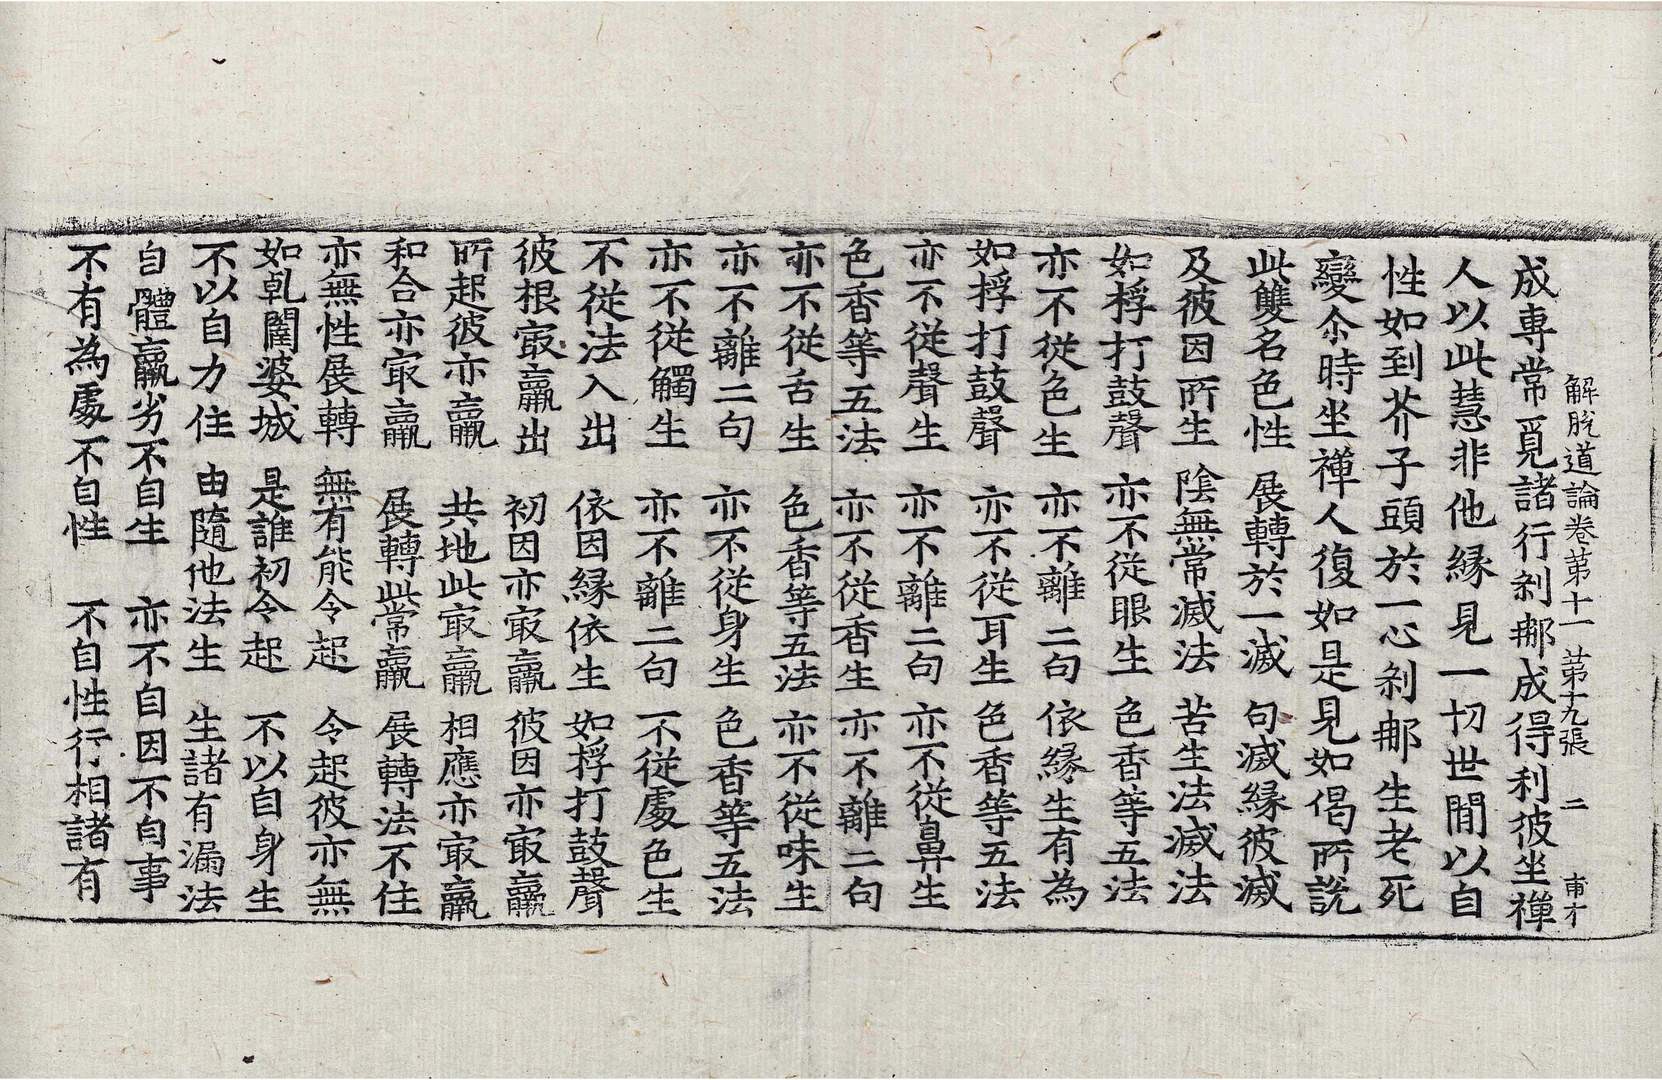 解脫道論卷第十一　第十九張　二　甫才
成專常覓諸行刹那成得利彼坐禪
人以此慧非他縁見一切世間以自
性如到芥子頭於一心刹那生老死
變尒時坐禪人復如是見如偈所說
此雙名色性　展轉於一滅　句滅縁彼滅
及彼因所生　陰無常滅法　苦生法滅法
如桴打鼓聲　亦不從眼生　色香等五法
亦不從色生　亦不離二句　依縁生有為
如桴打鼓聲　亦不從耳生　色香等五法
亦不從聲生　亦不離二句　亦不從鼻生
色香等五法　亦不從香生　亦不離二句
亦不從舌生　色香等五法　亦不從味生
亦不離二句　亦不從身生　色香等五法
亦不從觸生　亦不離二句　不從處色生
不從法入出　依因縁依生　如桴打鼓聲
彼根㝡羸出　初因亦㝡羸　彼因亦㝡羸
所起彼亦羸　共地此㝡羸　相應亦㝡羸
和合亦㝡羸　展轉此常羸　展轉法不住
亦無性展轉　無有能令起　令起彼亦無
如乹闥婆城　是誰初令起　不以自身生
不以自力住　由隨他法生　生諸有漏法
自體羸劣不自生　亦不自因不自事
不有為處不自性　不自性行相諸有